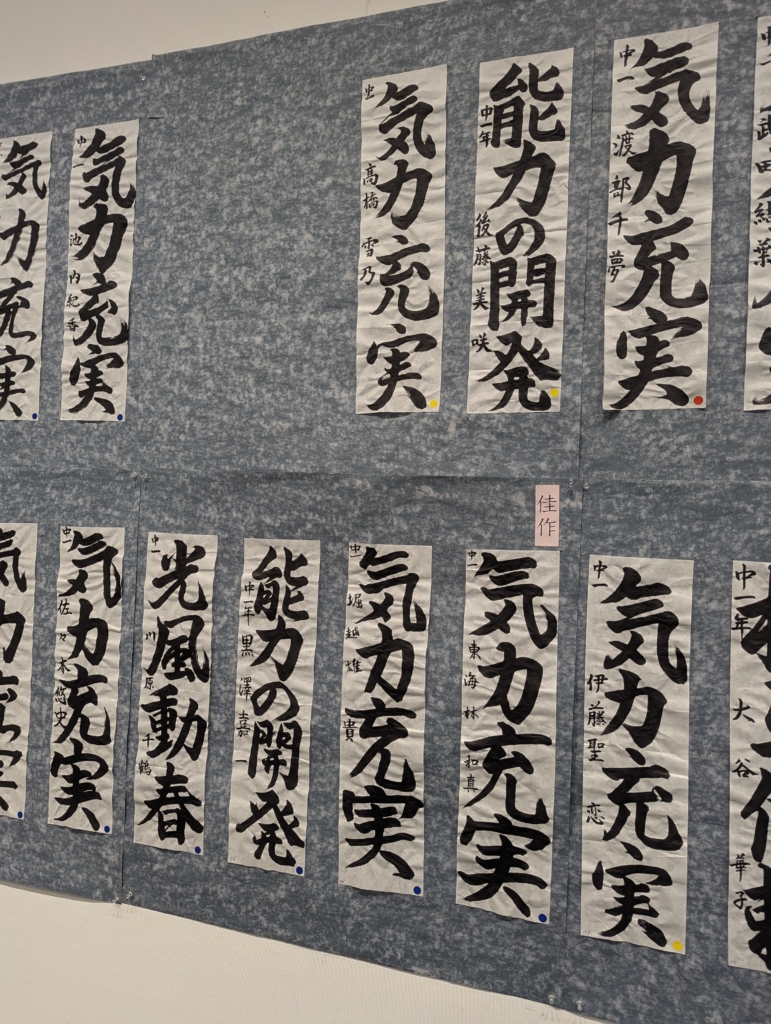 気力充実
中一
渡部千夢
能力の開発
中一年
後藤美咲
気力充実
高橋雪乃
気力充実
中一
池内紀香
気力充実
佳作
中一年
大谷華子
気力充実
中一
伊藤聖恋
気力充実
中一
東海林和真
気力充実
中一
堀越雄貴
能力の開発
中一年
黒澤嘉一
光風動春
中一
川原千鶴
気力充実
中一
佐々木悠史